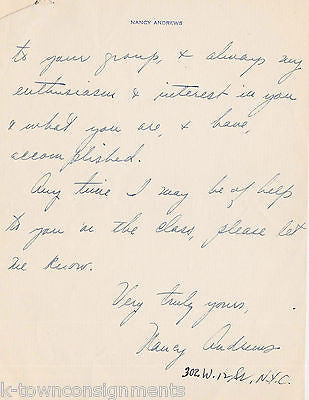 NANCY ANDREWS
to your group, & always my
enthusiasm & interest in you
& what you are, & have,
accomplished.
Any time I may be of help
to you or the class, please let
me know.
Very truly yours,
Nancy Andrews
302 W. 12 St., N.Y.C.
k-townconsignments